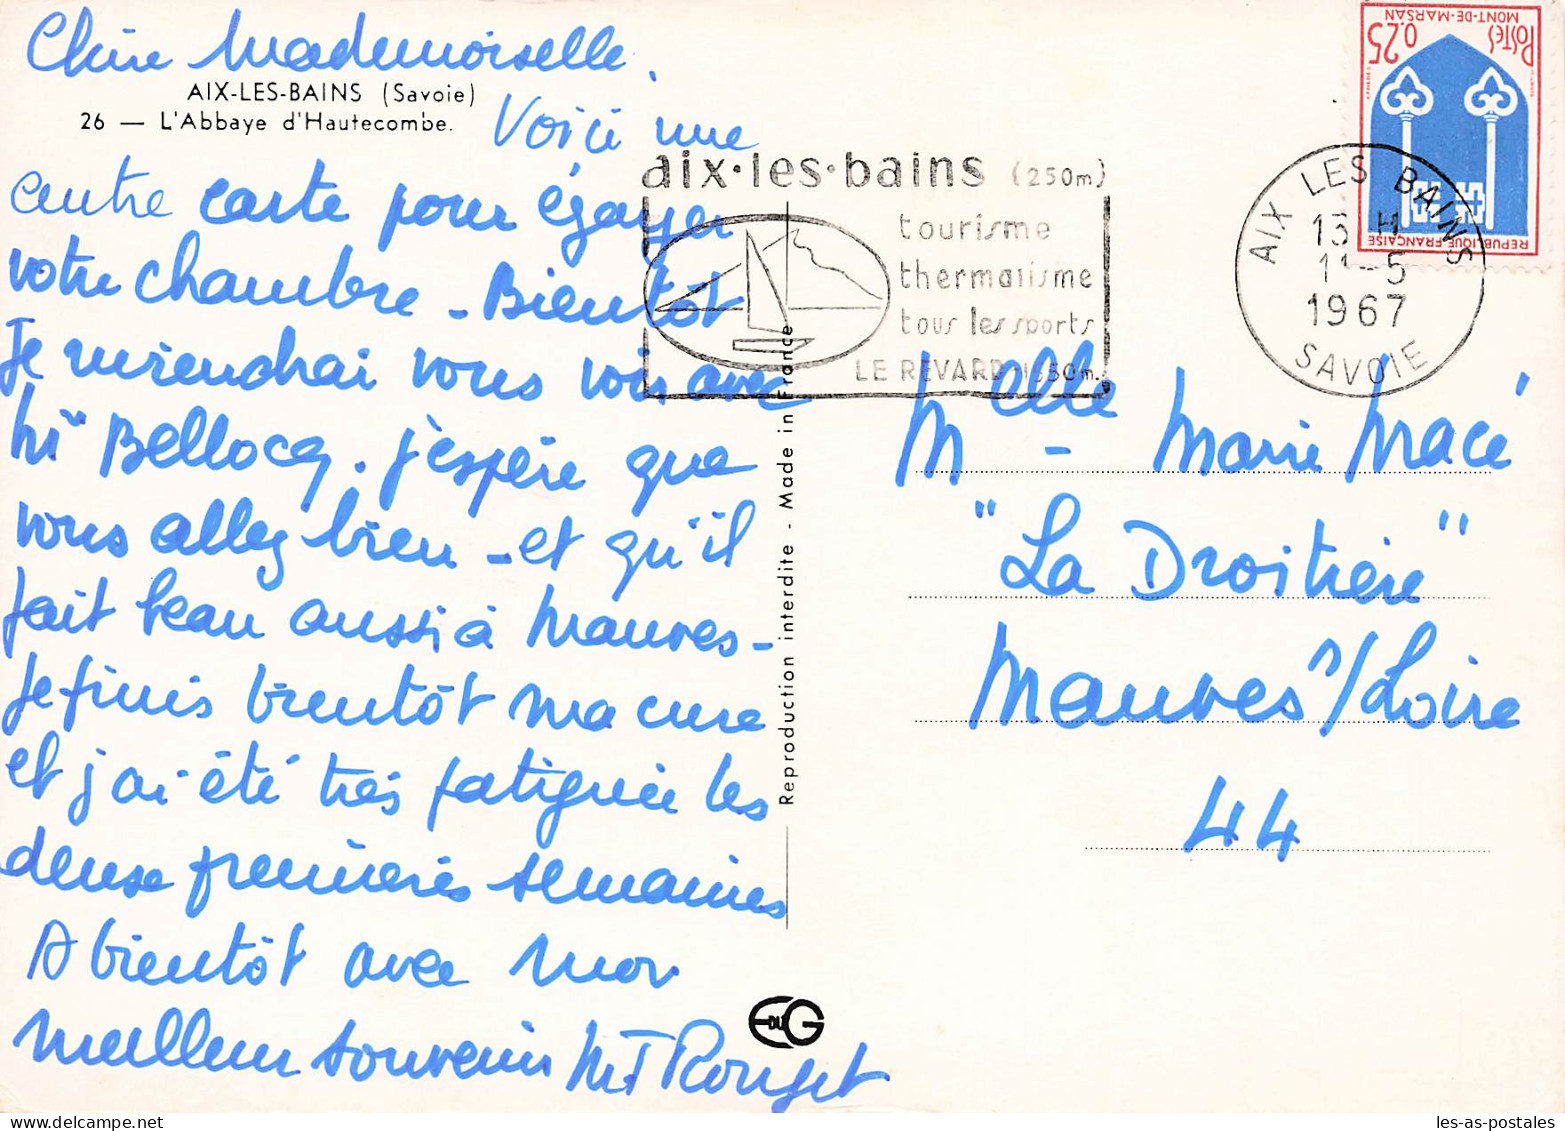 Chère Mademoiselle.
AIX-LES-BAINS (Savoie)
26 — L'Abbaye d'Hautecombe.
Voici une
autre carte pour égayer
votre chambre - Bientôt
Je reviendrai vous voir avec
Bellocq. j'espère que
vous allez bien - et qu'il
fait beau aussi à Mauves -
Je finis bientôt ma cure
et j'ai été très fatiguée les
deux premières semaines
A bientôt avec mon
meilleur souvenir MT Rouget
Reproduction interdite - Made in France
EDUG
aix·les·bains (250m)
tourisme
thermalisme
tous les sports
LE REVARD 1550m.
AIX LES BAINS
H
11-5
1967
SAVOIE
POSTES 0,25
MONT-DE-MARSAN
REPUBLIQUE FRANÇAISE
Melle - Marie Macé
"La Droitière"
Mauves s/Loire
44
les-as-postales